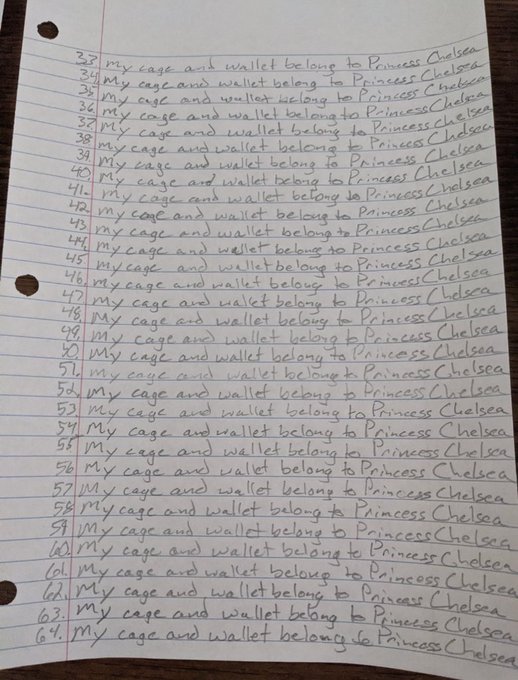 33. my cage and wallet belong to Princess Chelsea
34. my cage and wallet belong to Princess Chelsea
35. my cage and wallet belong to Princess Chelsea
36. my cage and wallet belong to Princess Chelsea
37. my cage and wallet belong to Princess Chelsea
38. my cage and wallet belong to Princess Chelsea
39. my cage and wallet belong to Princess Chelsea
40. my cage and wallet belong to Princess Chelsea
41. my cage and wallet belong to Princess Chelsea
42. my cage and wallet belong to Princess Chelsea
43. my cage and wallet belong to Princess Chelsea
44. my cage and wallet belong to Princess Chelsea
45. my cage and wallet belong to Princess Chelsea
46. my cage and wallet belong to Princess Chelsea
47. my cage and wallet belong to Princess Chelsea
48. my cage and wallet belong to Princess Chelsea
49. my cage and wallet belong to Princess Chelsea
50. my cage and wallet belong to Princess Chelsea
51. my cage and wallet belong to Princess Chelsea
52. my cage and wallet belong to Princess Chelsea
53. my cage and wallet belong to Princess Chelsea
54. my cage and wallet belong to Princess Chelsea
55. my cage and wallet belong to Princess Chelsea
56. my cage and wallet belong to Princess Chelsea
57. my cage and wallet belong to Princess Chelsea
58. my cage and wallet belong to Princess Chelsea
59. my cage and wallet belong to Princess Chelsea
60. my cage and wallet belong to Princess Chelsea
61. my cage and wallet belong to Princess Chelsea
62. my cage and wallet belong to Princess Chelsea
63. my cage and wallet belong to Princess Chelsea
64. my cage and wallet belong to Princess Chelsea